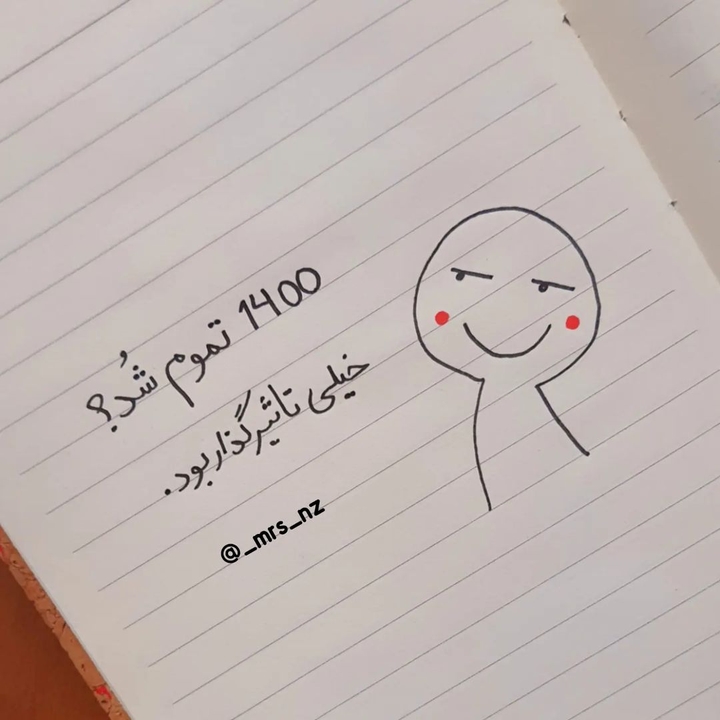 1400 تموم شُد؟
خیلی تاثیرگذار بود.
@_mrs_nz